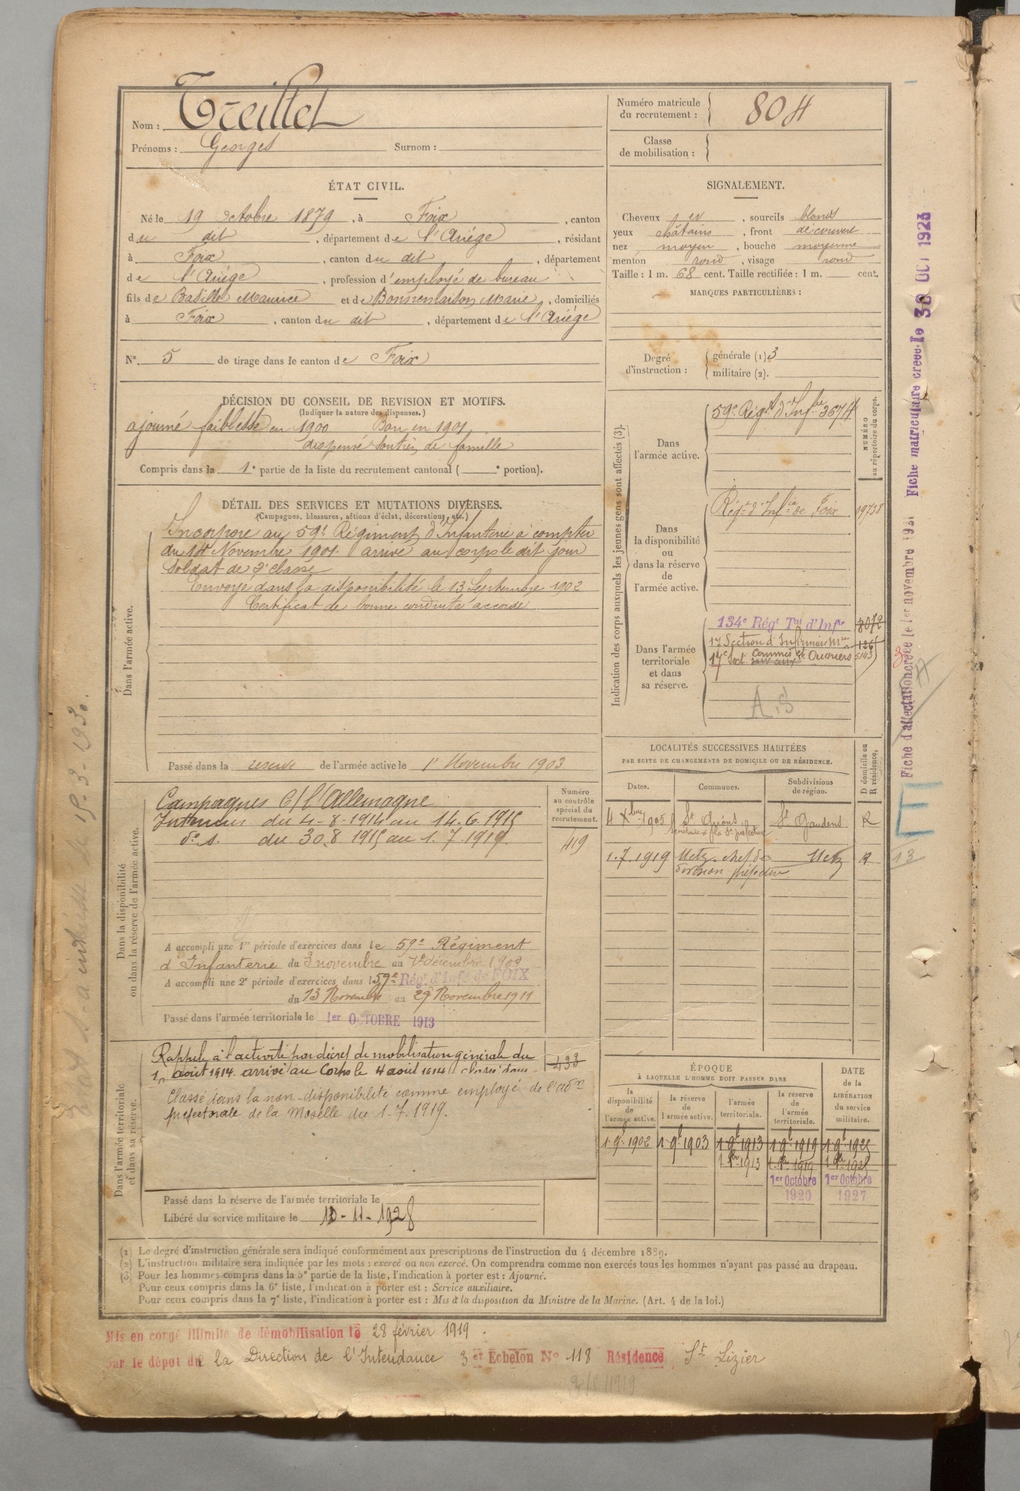 Nom : Treillet
Prénoms : Georges Surnom :
Numéro matricule du recrutement : 804
Classe de mobilisation :
ÉTAT CIVIL.
Né le 19 octobre 1879, à Foix, canton
du dit, département de l'Ariège, résidant
à Foix, canton du dit, département
de l'Ariège, profession d'employé de bureau
fils de Batille Maurice et de Bonnemaison Marie, domiciliés
à Foix, canton du dit, département de l'Ariège
N° 5 de tirage dans le canton de Foix
SIGNALEMENT.
Cheveux, sourcils blonds
yeux châtains, front découvert
nez moyen, bouche moyenne
menton rond, visage rond
Taille : 1 m. 68 cent. Taille rectifiée : 1 m. cent.
MARQUES PARTICULIÈRES :
Degré d'instruction : générale (1) 3
militaire (2).
DÉCISION DU CONSEIL DE REVISION ET MOTIFS.
(Indiquer la nature des dispenses.)
ajourné faiblesse en 1900 Bon en 1901
dispensé soutien de famille
Compris dans la 1e partie de la liste du recrutement cantonal ( e portion).
DÉTAIL DES SERVICES ET MUTATIONS DIVERSES.
(Campagnes, blessures, actions d'éclat, décorations, etc.)
Dans l'armée active.
Incorporé au 59e Régiment d'Infanterie à compter
du 14 Novembre 1901 arrivé au corps le dit jour
Soldat de 2e classe
Envoyé dans la disponibilité le 13 Septembre 1902
Certificat de bonne conduite accordé
Passé dans la réserve de l'armée active le 1er Novembre 1903
Dans la disponibilité ou dans la réserve de l'armée active.
Numéro au contrôle spécial du recrutement.
419
Campagnes C/ l'Allemagne
Intérieur du 4-8-1914 au 14.6.1915
du 30.8.1915 au 1.7.1919
A accompli une 1re période d'exercices dans le 59e Régiment
d'Infanterie du 3 novembre au décembre
A accompli une 2e période d'exercices dans le 59e Régt d'Infie de FOIX
du 13 Novembre au 29 Novembre 1911
Passé dans l'armée territoriale le 1er OCTOBRE 1913
Dans l'armée territoriale et dans sa réserve.
Rappelé à l'activité par décret de mobilisation générale du
1er août 1914 arrivé au Corps le 4 août 1914
Classé dans la non-disponibilité comme employé de l'adon
préfectorale de la Moselle du 1.7.1919.
Passé dans la réserve de l'armée territoriale le
Libéré du service militaire le 10-11-1928
Indication des corps auxquels les jeunes gens sont affectés (3).
NUMÉRO au répertoire du corps.
Dans l'armée active.
59e Régt d'Infie
Dans la disponibilité ou dans la réserve de l'armée active.
Régt d'Infie de Foix
Dans l'armée territoriale et dans sa réserve.
134e Régt Tal d'Infie
17 Section d'Infirmiers Mres
17e Sect Commis et Ouvriers
A.S
LOCALITÉS SUCCESSIVES HABITÉES
PAR SUITE DE CHANGEMENTS DE DOMICILE OU DE RÉSIDENCE.
Dates. Communes. Subdivisions de région. D domicile ou R résidence.
4 Xbre 1905 St Girons St Gaudens R
1.7.1919 Metz chef de division préfecture Metz R
ÉPOQUE
À LAQUELLE L'HOMME DOIT PASSER DANS
DATE de la LIBÉRATION du service militaire.
la disponibilité de l'armée active. la réserve de l'armée active. l'armée territoriale. la réserve de l'armée territoriale.
1 9bre 1902 1 9bre 1903 1 9bre 1913 1 9bre 1919
1er Octobre 1920 1er Octobre 1927
(1) Le degré d'instruction générale sera indiqué conformément aux prescriptions de l'instruction du 4 décembre 1889.
(2) L'instruction militaire sera indiquée par les mots : exercé ou non exercé. On comprendra comme non exercés tous les hommes n'ayant pas passé au drapeau.
(3) Pour les hommes compris dans la 5e partie de la liste, l'indication à porter est : Ajourné.
Pour ceux compris dans la 6e liste, l'indication à porter est : Service auxiliaire.
Pour ceux compris dans la 7e liste, l'indication à porter est : Mis à la disposition du Ministre de la Marine. (Art. 4 de la loi.)
Mis en congé illimité de démobilisation le 28 février 1919.
par le dépôt de la Direction de l'Intendance 3 et Echelon N° 118 Résidence St Lizier
Fiche matriculaire créée le 30 OCT 1923